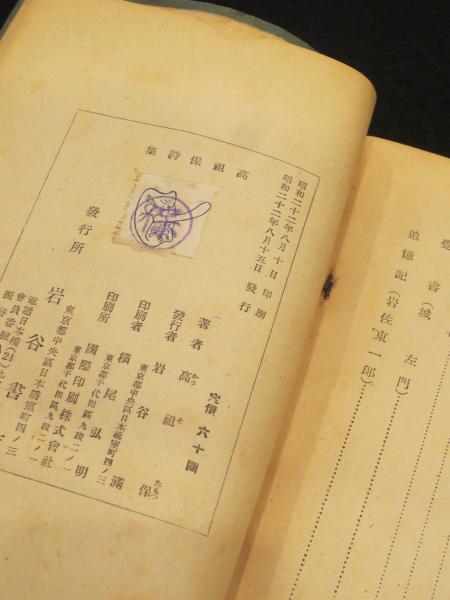 覺書(城左門)
追憶記(岩佐東一郎)
昭和二十二年八月十日 印刷
昭和二十二年八月十五日 發行
高祖保詩集
定價 六十圓
著者 高祖保
たかそ たもつ
發行者 岩谷滿
東京都中央區日本橋室町四ノ三
印刷者 橫尾弘明
東京都千代田區九段二ノ一
印刷所 國際印刷株式會社
東京都千代田區九段二ノ一
發行所
岩谷書
東京都中央區日本橋室町四ノ三
電話日本橋(24)
會員番號